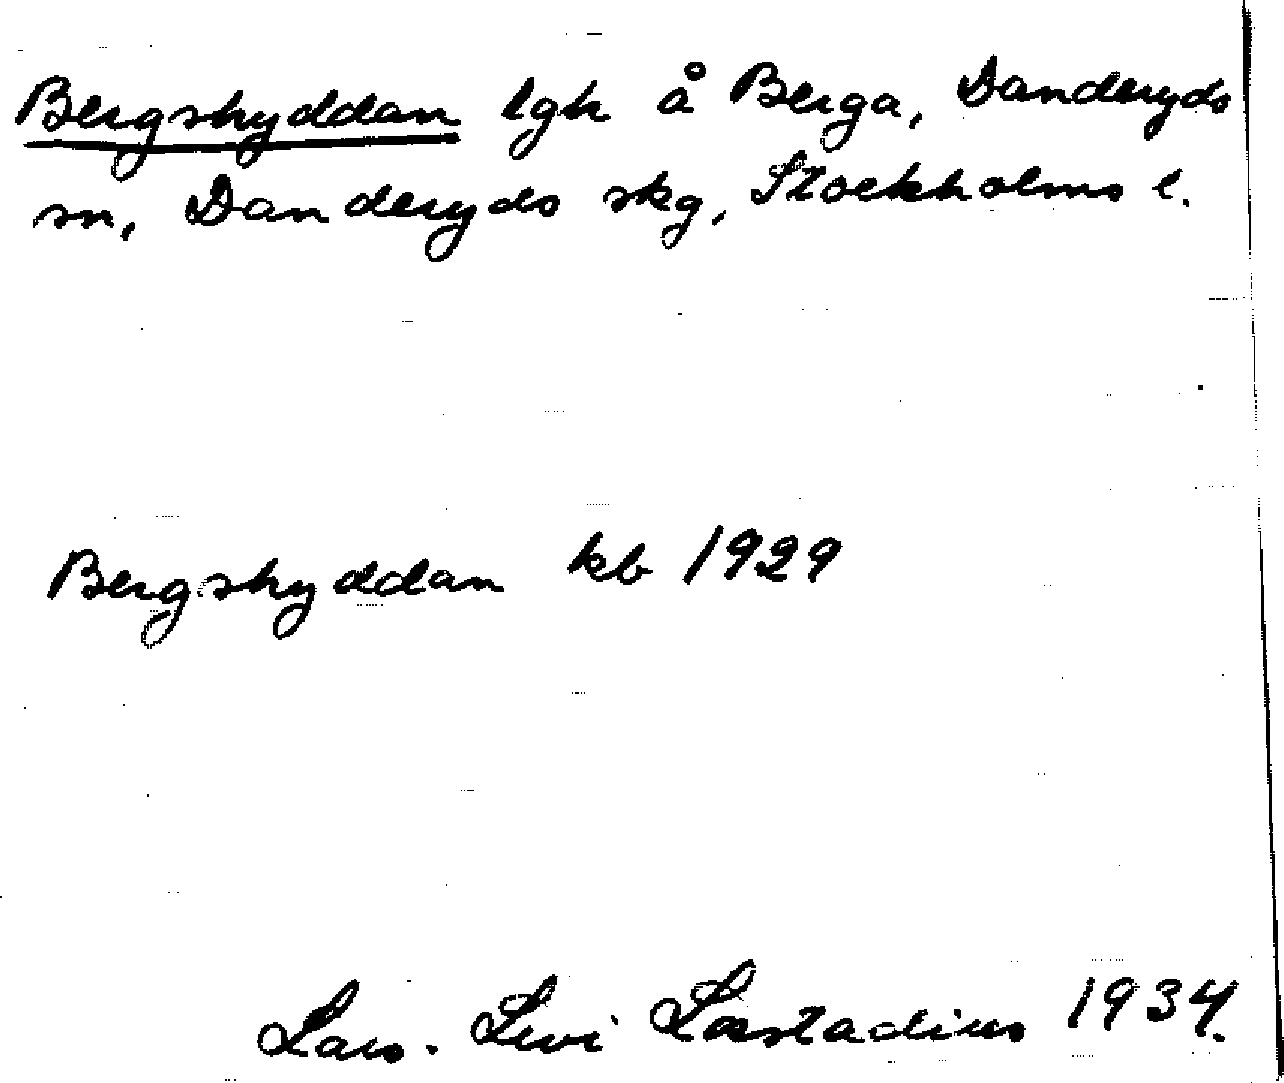 Bergshyddan lgh å Berga, Danderyds
sn, Danderyds skg, Stockholms l.
Bergshyddan kb 1929
Lars-Levi Læstadius 1934.